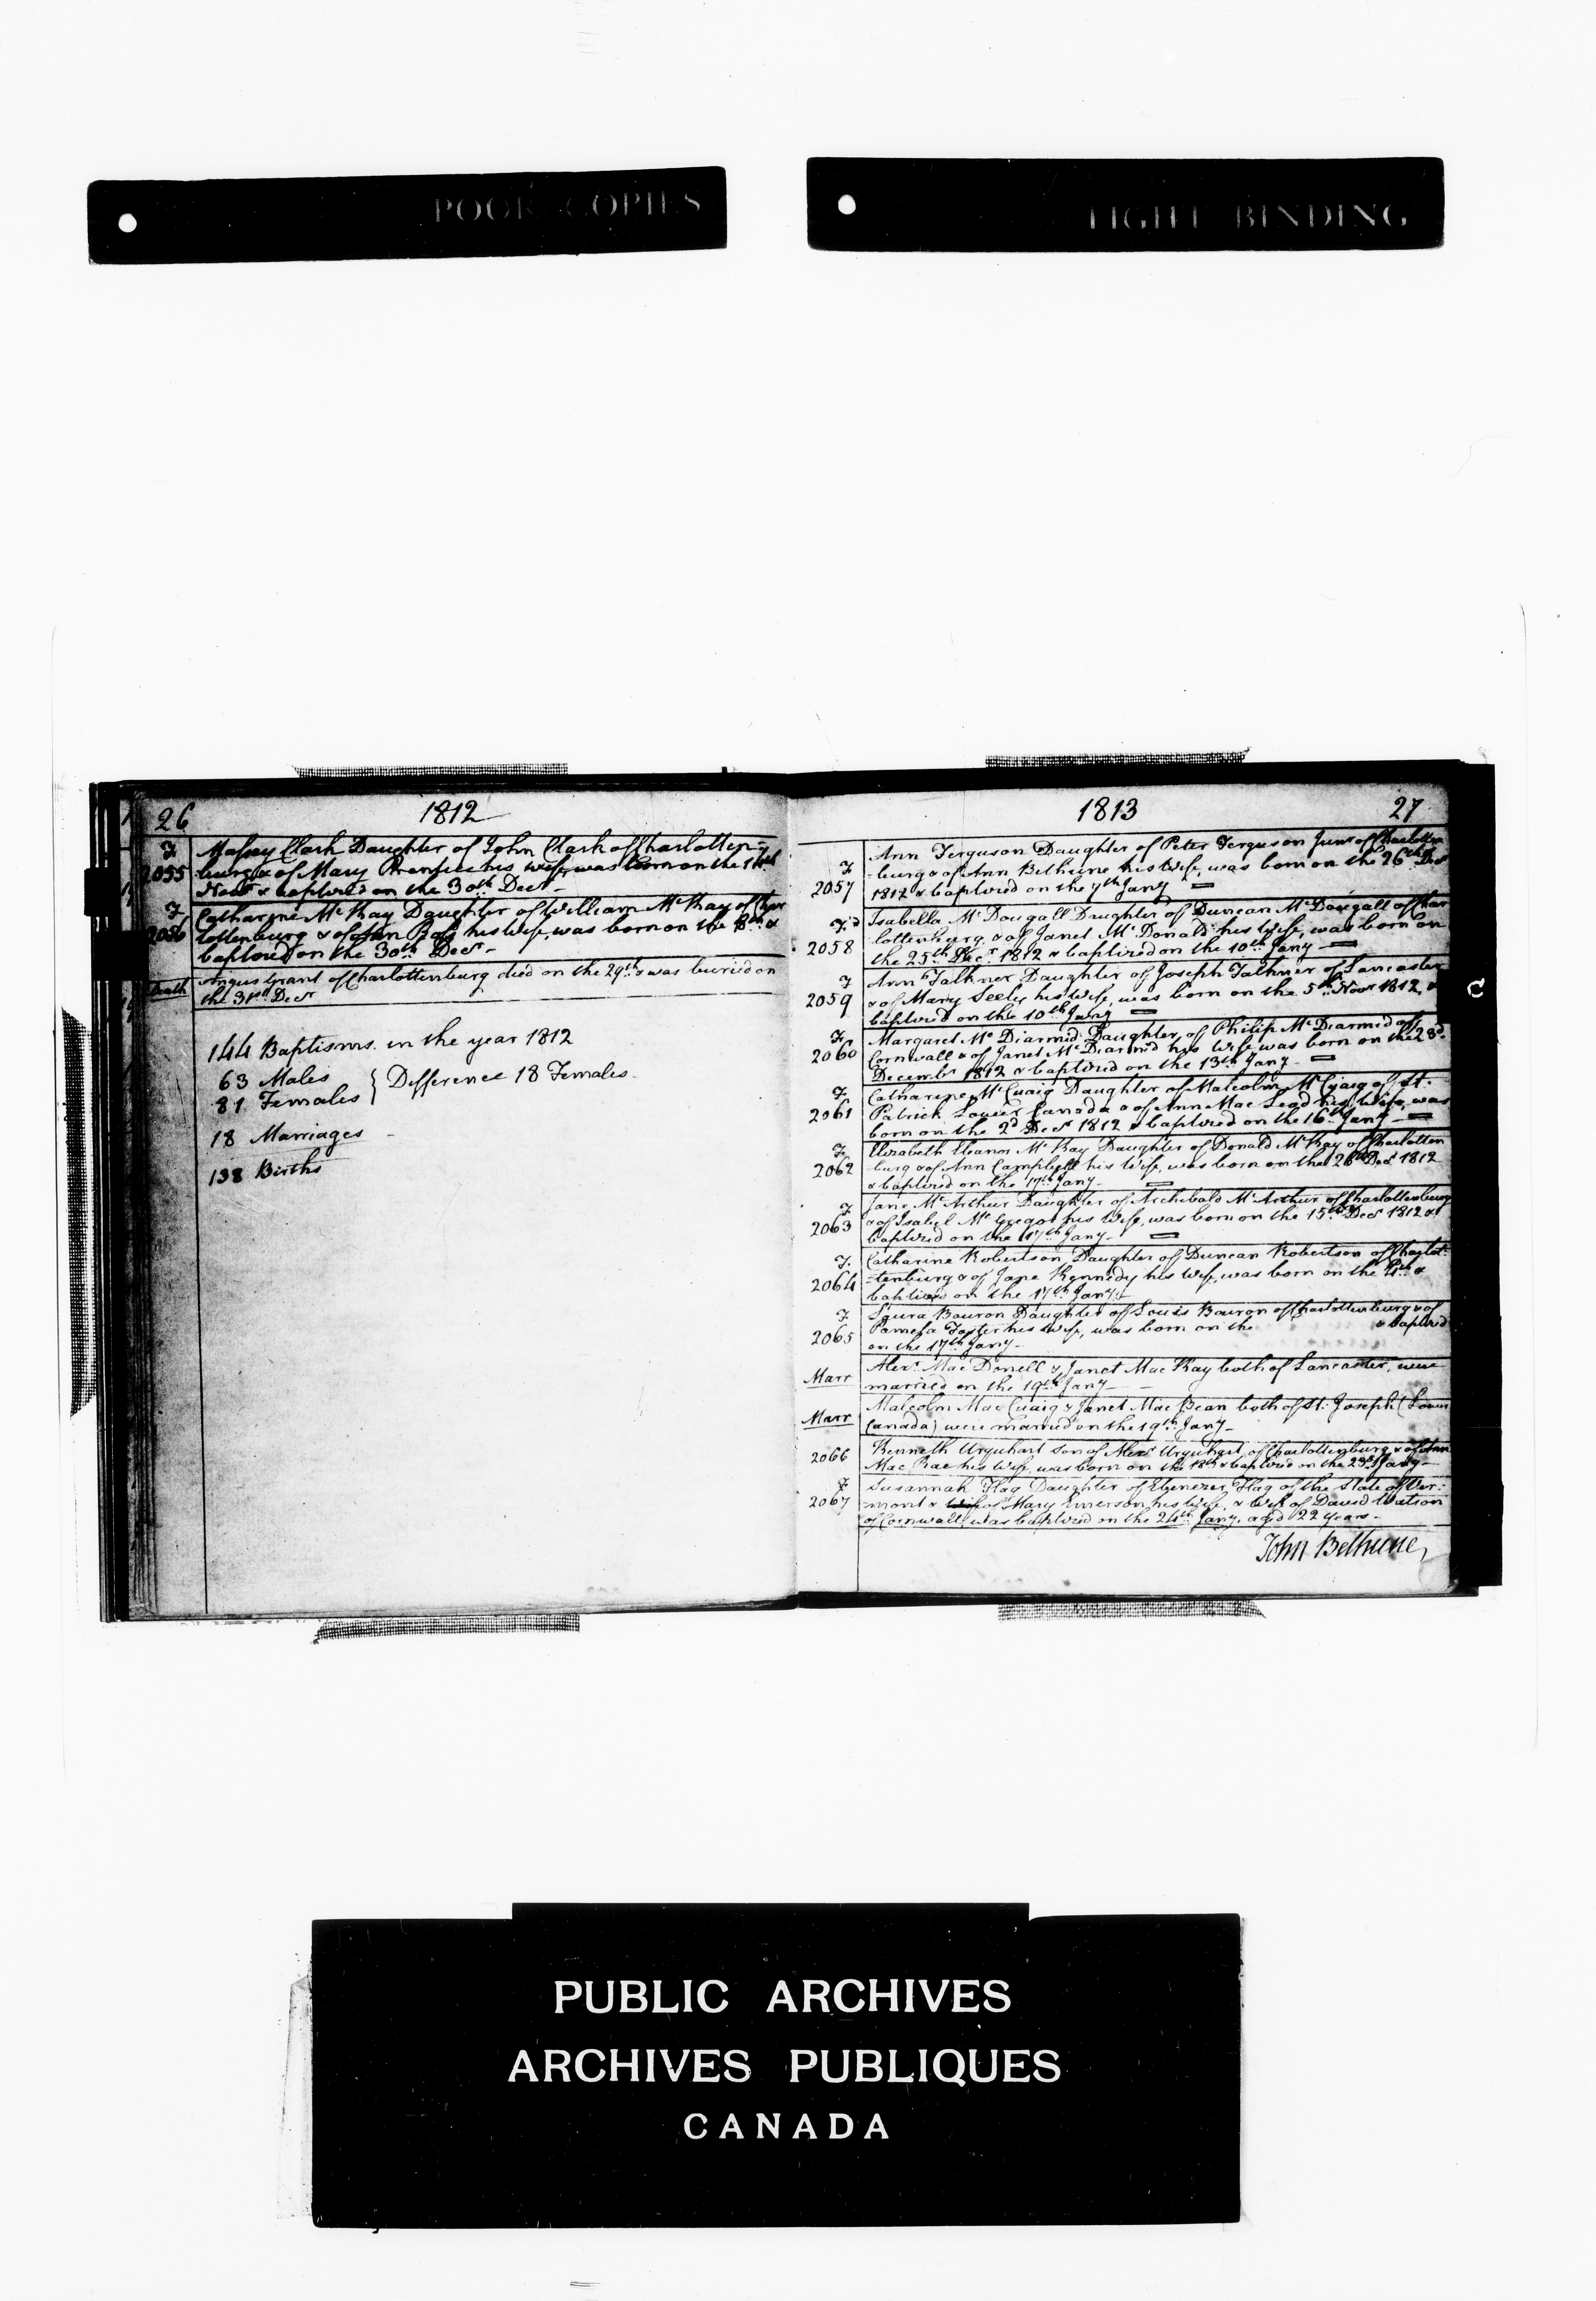 POOR COPIES
TIGHT BINDING
26 1812
F
2055
Massey Clark Daughter of John Clark of Charlotten-
burg & of Mary Prentice his wife, was born on the 14th
Novr & baptized on the 30th Decr -
F
2056
Catharine McKay Daughter of William McKay of Char
lottenburg & of Ann Ross his wife, was born on the 8th &
baptized on the 30th Decr -
Death
Angus Grant of Charlottenburg died on the 29th & was buried on
the 31st Decr
144 Baptisms. in the year 1812
63 Males
81 Females } Difference 18 Females -
18 Marriages -
138 Births
1813 27
F
2057
Ann Ferguson Daughter of Peter Ferguson Junr of Charlotten
-burg & of Ann Bethune his Wife, was born on the 26th Decr
1812 & baptized on the 7th Jany
F
2058
Isabella McDougall Daughter of Duncan McDougall of Char
lottenburg & of Janet McDonald his Wife, was born on
the 25th Decr 1812 & baptized on the 10th Jany
F
2059
Ann Falkner Daughter of Joseph Falkner of Lancaster
& of Mary Seeley his Wife, was born on the 5th Novr 1812, &
baptized on the 10th Jany
F
2060
Margaret McDiarmid Daughter of Philip McDiarmid of
Cornwall & of Janet McDiarmid his Wife was born on the 28d
Decembr 1812 & baptized on the 13th Jany -
F
2061
Catharine McCuaig Daughter of Malcolm McCuaig of St.
Patrick Lower Canada & of Ann Mac Leod his Wife, was
born on the 2d Decr 1812 & baptized on the 16th Jany -
F
2062
Elizabeth Eleanor McKay Daughter of Donald McKay of Charlotten
burg & of Ann Campbell his Wife, was born on the 26th Decr 1812
& baptized on the 17th Jany -
F
2063
Jane McArthur Daughter of Archibald McArthur of Charlottenburg
& of Isabel McGregor his Wife, was born on the 15th Decr 1812 &
baptized on the 17th Jany -
F.
2064
Catharine Robertson Daughter of Duncan Robertson of Charlot-
-tenburg & of Jane Kennedy his Wife, was born on the 4th &
baptized on the 17th Jany -
F
2065
Laura Bouron Daughter of Louis Bouron of Charlottenburg & of
Pamela Foster his Wife, was born on the & baptized
on the 17th Jany -
Marr
Alexr Mac Donell & Janet Mac Kay both of Lancaster, were
married on the 19th Jany -
Marr
Malcolm Mac Cuaig & Janet Mac Bean both of St. Joseph (Lower
Canada) were married on the 19th Jany -
2066
Kenneth Urquhart son of Alexr Urquhart of Charlottenburg & of Ann
Mac Rae his Wife was born on the 18th & baptized on the 23d Jany -
F
2067
Susannah Flag Daughter of Ebenezer Flag of the State of Ver-
mont & of Mary Emerson his Wife, & Wife of David Watson
of Cornwall, was baptized on the 24th Jany. aged 22 years -
John Bethune,
PUBLIC ARCHIVES
ARCHIVES PUBLIQUES
CANADA